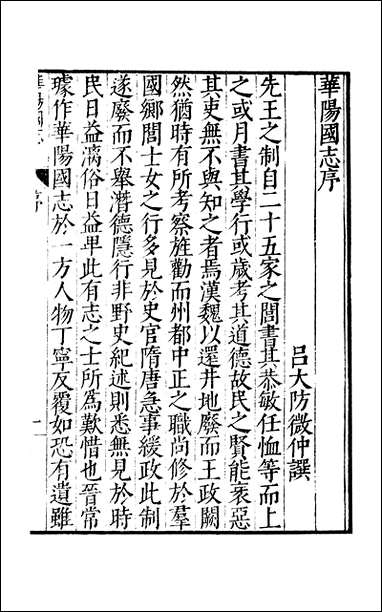 華陽國志序
呂大防微仲譔
先王之制自二十五家之閭書其恭敏任恤等而上
之或月書其學行或歲考其道德故民之賢能衺惡
其吏無不與知之者焉漢魏以還井地廢而王政闕
然猶時有所考察旌勸而州都中正之職尚修於羣
國鄉閭士女之行多見於史官隋唐急事緩政此制
遂廢而不舉潛德隱行非野史紀述則悉無見於時
民日益漓俗日益卑此有志之士所為歎惜也晉常
璩作華陽國志於一方人物丁寧反覆如恐有遺雖
華陽國志
序